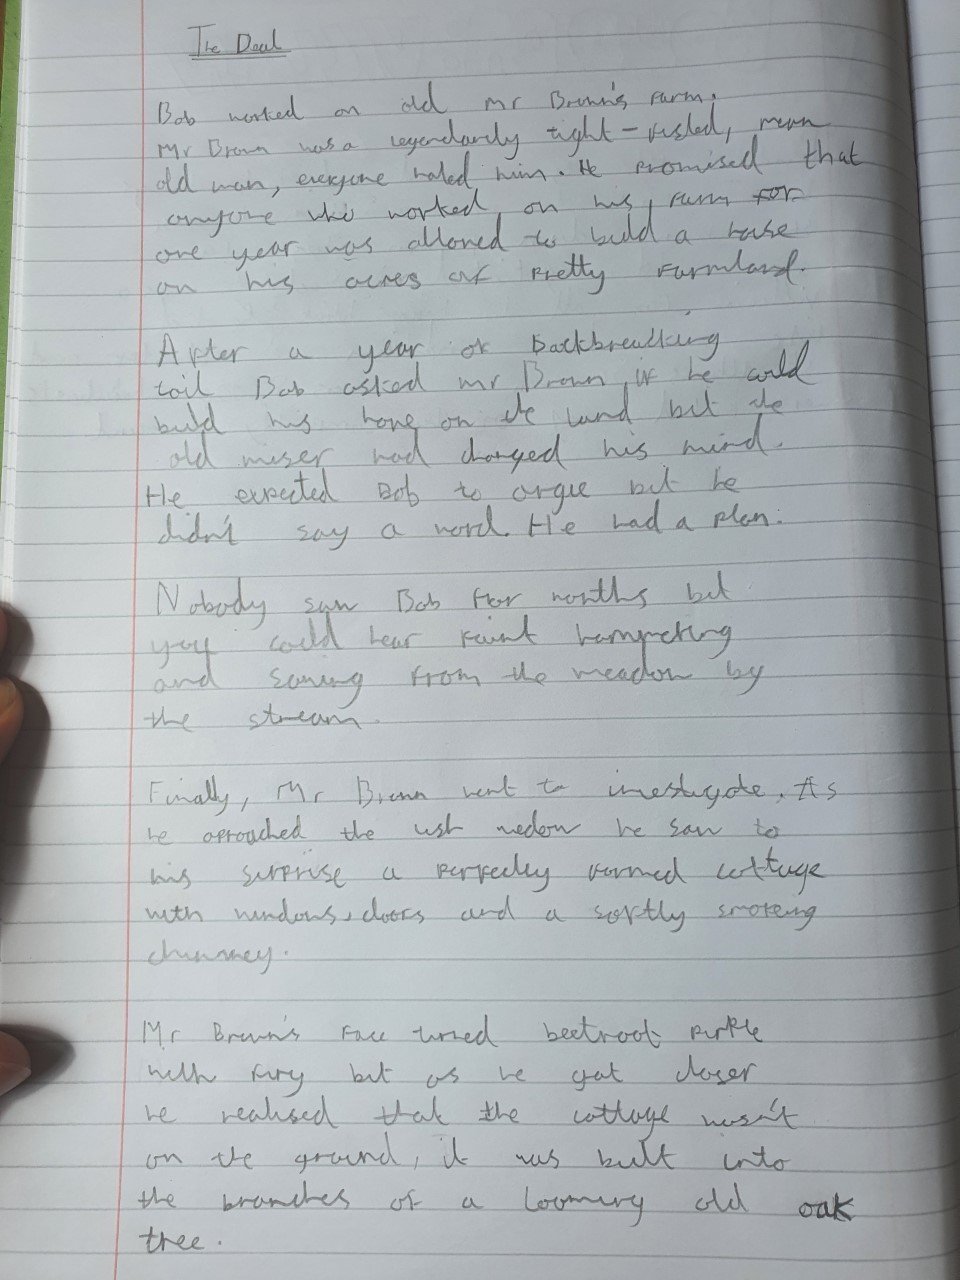 The Deal
Bob worked on old Mr Brown's farm.
Mr Brown was a legendarily tight-fisted, mean
old man, everyone hated him. He promised that
anyone who worked on his farm for
one year was allowed to build a house
on his acres of pretty farmland.
After a year of backbreaking
toil Bob asked Mr Brown if he could
build his home on the land but the
old miser had changed his mind.
He expected Bob to argue but he
didn't say a word. He had a plan.
Nobody saw Bob for months but
you could hear faint hammering
and sawing from the meadow by
the stream.
Finally, Mr Brown went to investigate. As
he aproached the lush medow he saw to
his surprise a perfectly formed cottage
with windows, doors and a softly smoking
chimney.
Mr Brown's face turned beetroot purple
with fury but as he got closer
he realised that the cottage wasn't
on the ground, it was built into
the branches of a looming old oak
tree.